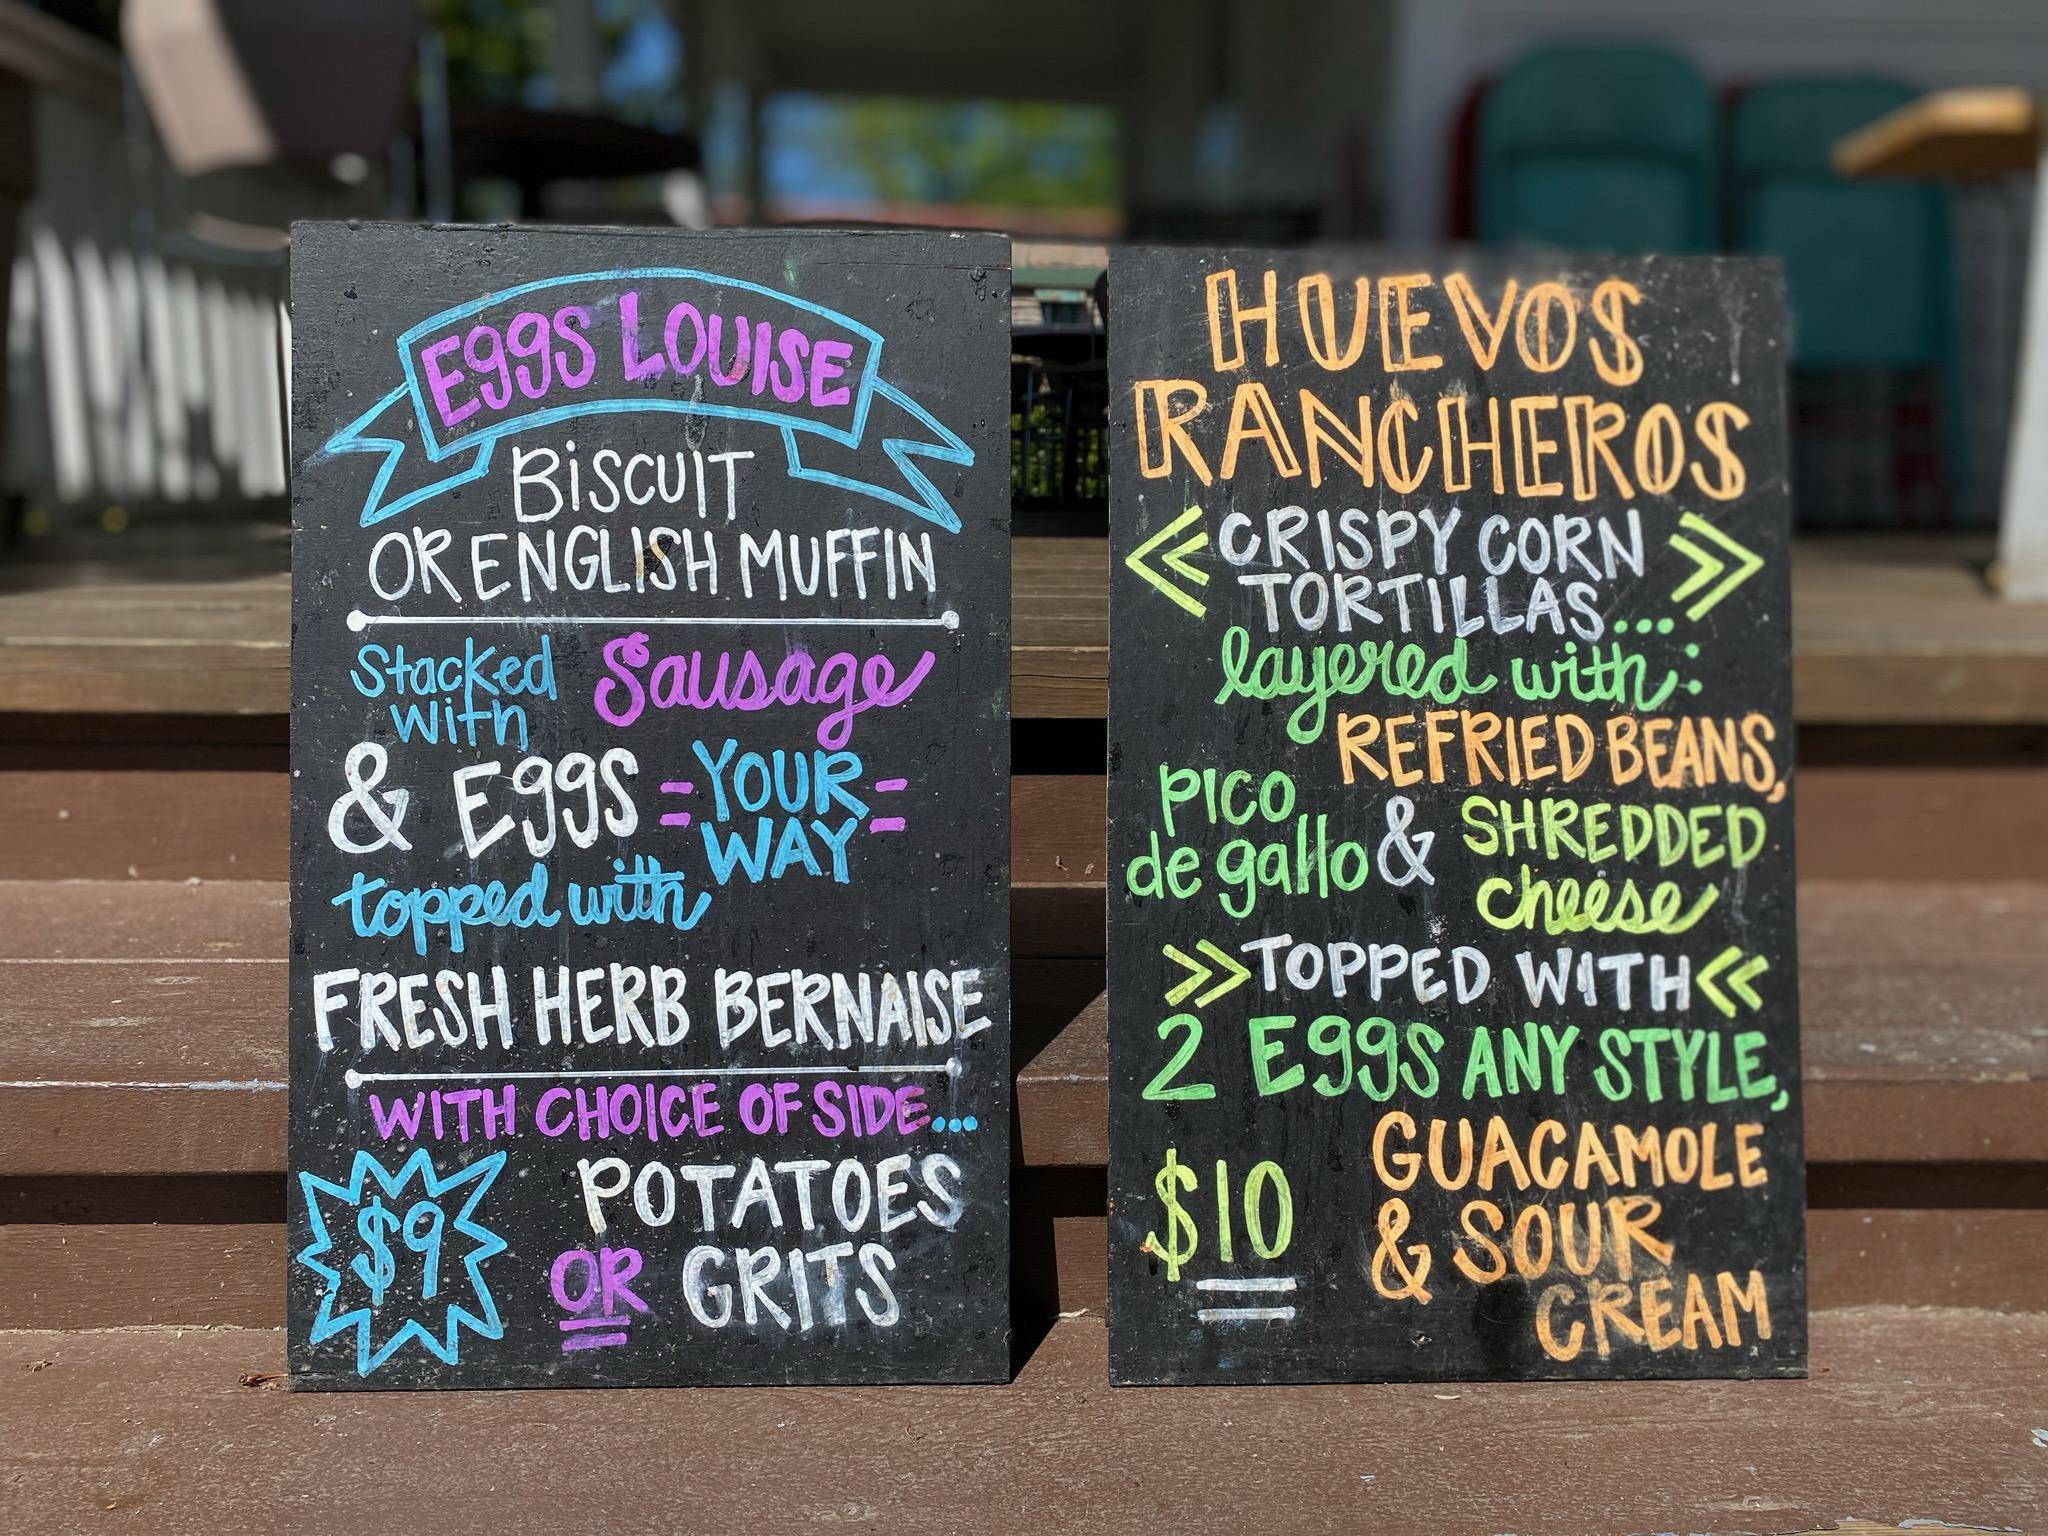 EggS LOUISE
BiSCUIT
OR ENGLISH MUFFIN
Stacked
with
Sausage
& EggS
YOUR
WAY
topped with
FRESH HERB BERNAISE
WITH CHOICE OF SIDE...
$9
POTATOES
OR GRITS
HUEVOS
RANCHEROS
CRISPY CORN
TORTILLAS...
layered with:
REFRIED BEANS,
PICO
de gallo
&
SHREDDED
cheese
TOPPED WITH
2 EggS ANY STYLE,
$10
GUACAMOLE
& SOUR
CREAM